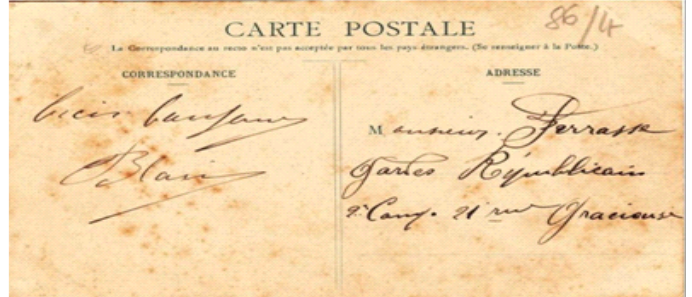 CARTE POSTALE
86/4
La Correspondance au recto n'est pas acceptée par tous les pays étrangers. (Se renseigner à la Poste.)
CORRESPONDANCE
Blain
ADRESSE
Monsieur Ferrasse
Garde Républicain
2e Comp. 21 rue Gracieuse